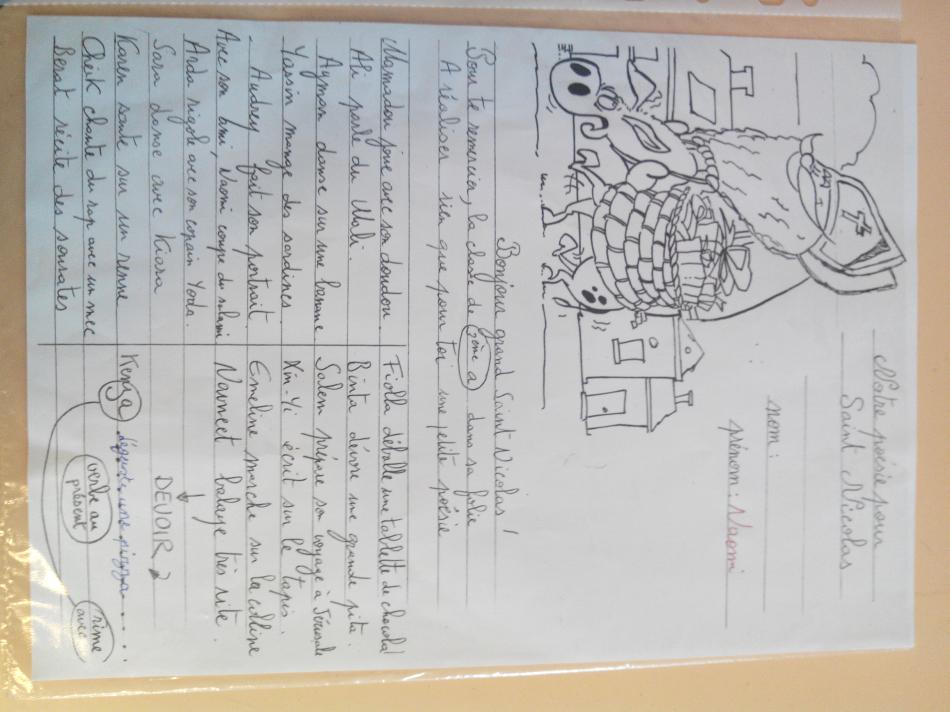 Notre poésie pour
Saint Nicolas
nom :
prénom : Naomi
Bonjour grand Saint Nicolas !
Pour te remercier, la classe de 5ème a dans sa folie
A réaliser rien que pour toi une petite poésie
Mamadou joue avec son doudou.
Ali parle du Mali.
Aymon danse sur une banane
Yassin mange des sardines.
Audrey fait son portrait.
Avec son ami, Naomi coupe du salami
Arda rigole avec son copain Yoda.
Sara danse avec Kiara
Karen saute sur un renne
Cheik chante du rap avec un mec
Berat récite des sourates
Fiolla déballe une tablette de chocolat
Binta dévore une grande pita.
Salem prépare son voyage à Jérusale
Xin-Yi écrit sur le tapis.
Emeline marche sur la colline
Navneet balaye très vite.
DEVOIR
Kenza déguste une pizza
verbe au
présent
rime
avec